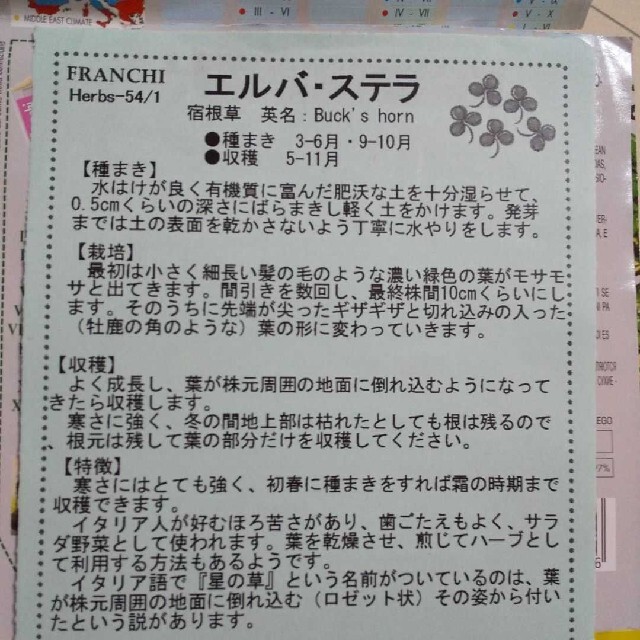 III - VI
IV - VII
V - X
MIDDLE EAST CLIMATE
FRANCHI
Herbs-54/1
エルバ・ステラ
宿根草 英名：Buck's horn
●種まき 3-6月・9-10月
●収穫 5-11月
【種まき】
水はけが良く有機質に富んだ肥沃な土を十分湿らせて、
0.5cmくらいの深さにばらまきし軽く土をかけます。発芽
までは土の表面を乾かさないよう丁寧に水やりをします。
【栽培】
最初は小さく細長い髪の毛のような濃い緑色の葉がモサモ
サと出てきます。間引きを数回し、最終株間10cmくらいにし
ます。そのうちに先端が尖ったギザギザと切れ込みの入った
（牡鹿の角のような）葉の形に変わっていきます。
【収穫】
よく成長し、葉が株元周囲の地面に倒れ込むようになって
きたら収穫します。
寒さに強く、冬の間地上部は枯れたとしても根は残るので
、根元は残して葉の部分だけを収穫してください。
【特徴】
寒さにはとても強く、初春に種まきをすれば霜の時期まで
収穫できます。
イタリア人が好むほろ苦さがあり、歯ごたえもよく、サラ
ダ野菜として使われます。葉を乾燥させ、煎じてハーブとし
て利用する方法もあるようです。
イタリア語で『星の草』という名前がついているのは、葉
が株元周囲の地面に倒れ込む（ロゼット状）その姿から付い
たという説があります。